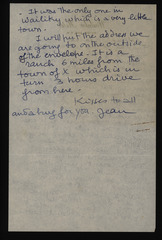 . It was the only one in
which is a very little
town.
I will put the address we
are going to on the outside
of the envelope. It is a
ranch 6 miles from the
town of X which is in
turn 3 hours drive
from here.
Kisses to all
and a hug for you. Jean